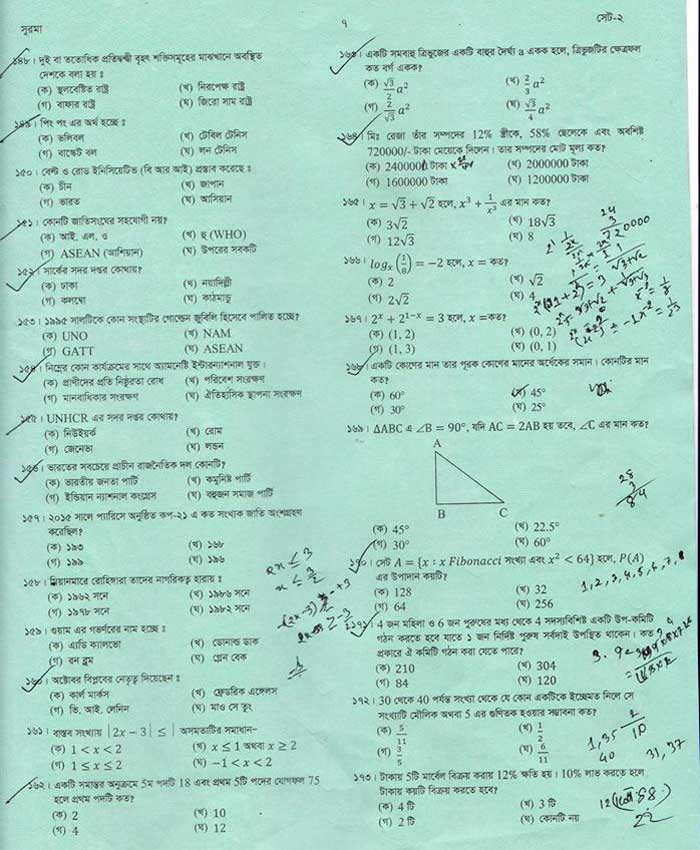 সুরমা
৭
সেট-২
১৪৮। দুই বা ততোধিক প্রতিদ্বন্দ্বী বৃহৎ শক্তিসমূহের মাঝখানে অবস্থিত
দেশকে বলা হয় ঃ
(ক) স্থলবেষ্টিত রাষ্ট্র (খ) নিরপেক্ষ রাষ্ট্র
(গ) বাফার রাষ্ট্র (ঘ) জিরো সাম রাষ্ট্র
১৪৯। পিং পং এর অর্থ হচ্ছে ঃ
(ক) ভলিবল (খ) টেবিল টেনিস
(গ) বাস্কেট বল (ঘ) লন টেনিস
১৫০। বেল্ট ও রোড ইনিসিয়েটিভ (বি আর আই) প্রস্তাব করেছে ঃ
(ক) চীন (খ) জাপান
(গ) ভারত (ঘ) আসিয়ান
১৫১। কোনটি জাতিসংঘের সহযোগী নয়?
(ক) আই. এল. ও (খ) হু (WHO)
(গ) ASEAN (আশিয়ান) (ঘ) উপরের সবকটি
১৫২। সার্কের সদর দপ্তর কোথায়?
(ক) ঢাকা (খ) নয়াদিল্লী
(গ) কলম্বো (ঘ) কাঠমান্ডু
১৫৩। ১৯৯৫ সালটিকে কোন সংস্থাটির গোল্ডেন জুবিলি হিসেবে পালিত হচ্ছে?
(ক) UNO (খ) NAM
(গ) GATT (ঘ) ASEAN
১৫৪। নিম্নের কোন কার্যক্রমের সাথে অ্যামনেষ্টি ইন্টারন্যাশনাল যুক্ত।
(ক) প্রাণীদের প্রতি নিষ্ঠুরতা রোধ (খ) পরিবেশ সংরক্ষণ
(গ) মানবাধিকার সংরক্ষণ (ঘ) ঐতিহাসিক স্থাপনা সংরক্ষণ
১৫৫। UNHCR এর সদর দপ্তর কোথায়?
(ক) নিউইয়র্ক (খ) রোম
(গ) জেনেভা (ঘ) লন্ডন
১৫৬। ভারতের সবচেয়ে প্রাচীন রাজনৈতিক দল কোনটি?
(ক) ভারতীয় জনতা পার্টি (খ) কমুনিষ্ট পার্টি
(গ) ইন্ডিয়ান ন্যাশনাল কংগ্রেস (ঘ) বহুজন সমাজ পার্টি
১৫৭। ২০১৫ সালে প্যারিসে অনুষ্ঠিত কপ-২১ এ কত সংখ্যক জাতি অংশগ্রহণ
করেছিল?
(ক) ১৯৩ (খ) ১৬৮
(গ) ১৯৯ (ঘ) ১৯৬
১৫৮। মিয়ানমারে রোহিঙ্গারা তাদের নাগরিকত্ব হারায় ঃ
(ক) ১৯৬২ সনে (খ) ১৯৮৬ সনে
(গ) ১৯৭৮ সনে (ঘ) ১৯৮২ সনে
১৫৯। গুয়াম এর গভর্ণরের নাম হচ্ছে ঃ
(ক) এ্যাডি ক্যালভো (খ) ডোনাল্ড ডাক
(গ) রন ব্লুম (ঘ) গ্লেন বেক
১৬০। অক্টোবর বিপ্লবের নেতৃত্ব দিয়েছেন ঃ
(ক) কার্ল মার্কস (খ) ফ্রেডরিক এঙ্গেলস
(গ) ভি. আই. লেনিন (ঘ) মাও সে তুং
১৬১। বাস্তব সংখ্যায় |2x − 3| ≤ | অসমতাটির সমাধান–
(ক) 1 < x < 2 (খ) x ≤ 1 অথবা x ≥ 2
(গ) 1 ≤ x ≤ 2 (ঘ) −1 < x < 2
১৬২। একটি সমান্তর অনুক্রমে 5ম পদটি 18 এবং প্রথম 5টি পদের যোগফল 75
হলে প্রথম পদটি কত?
(ক) 2 (খ) 10
(গ) 4 (ঘ) 12
১৬৩। একটি সমবাহু ত্রিভুজের একটি বাহুর দৈর্ঘ্য a একক হলে, ত্রিভুজটির ক্ষেত্রফল
কত বর্গ একক?
(ক) √3/2 a² (খ) 2/3 a²
(গ) 2/√3 a² (ঘ) √3/4 a²
১৬৪। মিঃ রেজা তাঁর সম্পদের 12% স্ত্রীকে, 58% ছেলেকে এবং অবশিষ্ট
720000/- টাকা মেয়েকে দিলেন। তার সম্পদের মোট মূল্য কত?
(ক) 2400000 টাকা (খ) 2000000 টাকা
(গ) 1600000 টাকা (ঘ) 1200000 টাকা
১৬৫। x = √3 + √2 হলে, x³ + 1/x³ এর মান কত?
(ক) 3√2 (খ) 18√3
(গ) 12√3 (ঘ) 8
১৬৬। logₓ(1/8) = −2 হলে, x = কত?
(ক) 2 (খ) √2
(গ) 2√2 (ঘ) 4
১৬৭। 2ˣ + 2¹⁻ˣ = 3 হলে, x =কত?
(ক) (1, 2) (খ) (0, 2)
(গ) (1, 3) (ঘ) (0, 1)
১৬৮। একটি কোণের মান তার পূরক কোণের মানের অর্ধেকের সমান। কোনটির মান
কত?
(ক) 60° (খ) 45°
(গ) 30° (ঘ) 25°
১৬৯। ΔABC এ ∠B = 90°, যদি AC = 2AB হয় তবে, ∠C এর মান কত?
A
B C
(ক) 45° (খ) 22.5°
(গ) 30° (ঘ) 60°
১৭০। সেট A = {x : x Fibonacci সংখ্যা এবং x² < 64} হলে, P(A)
এর উপাদান কয়টি?
(ক) 128 (খ) 32
(গ) 64 (ঘ) 256
1, 2, 3, 4, 5, 6, 7, 8
১৭১। 4 জন মহিলা ও 6 জন পুরুষের মধ্য থেকে 4 সদস্যবিশিষ্ট একটি উপ-কমিটি
গঠন করতে হবে যাতে 1 জন নির্দিষ্ট পুরুষ সর্বদাই উপস্থিত থাকেন। কত
প্রকারে ঐ কমিটি গঠন করা যেতে পারে?
(ক) 210 (খ) 304
(গ) 84 (ঘ) 120
১৭২। 30 থেকে 40 পর্যন্ত সংখ্যা থেকে যে কোন একটিকে ইচ্ছেমত নিলে সে
সংখ্যাটি মৌলিক অথবা 5 এর গুণিতক হওয়ার সম্ভাবনা কত?
(ক) 5/11 (খ) 1/2
(গ) 3/5 (ঘ) 6/11
31, 37
১৭৩। টাকায় 5টি মার্বেল বিক্রয় করায় 12% ক্ষতি হয়। 10% লাভ করতে হলে
টাকায় কয়টি বিক্রয় করতে হবে?
(ক) 4 টি (খ) 3 টি
(গ) 2 টি (ঘ) কোনটি নয়